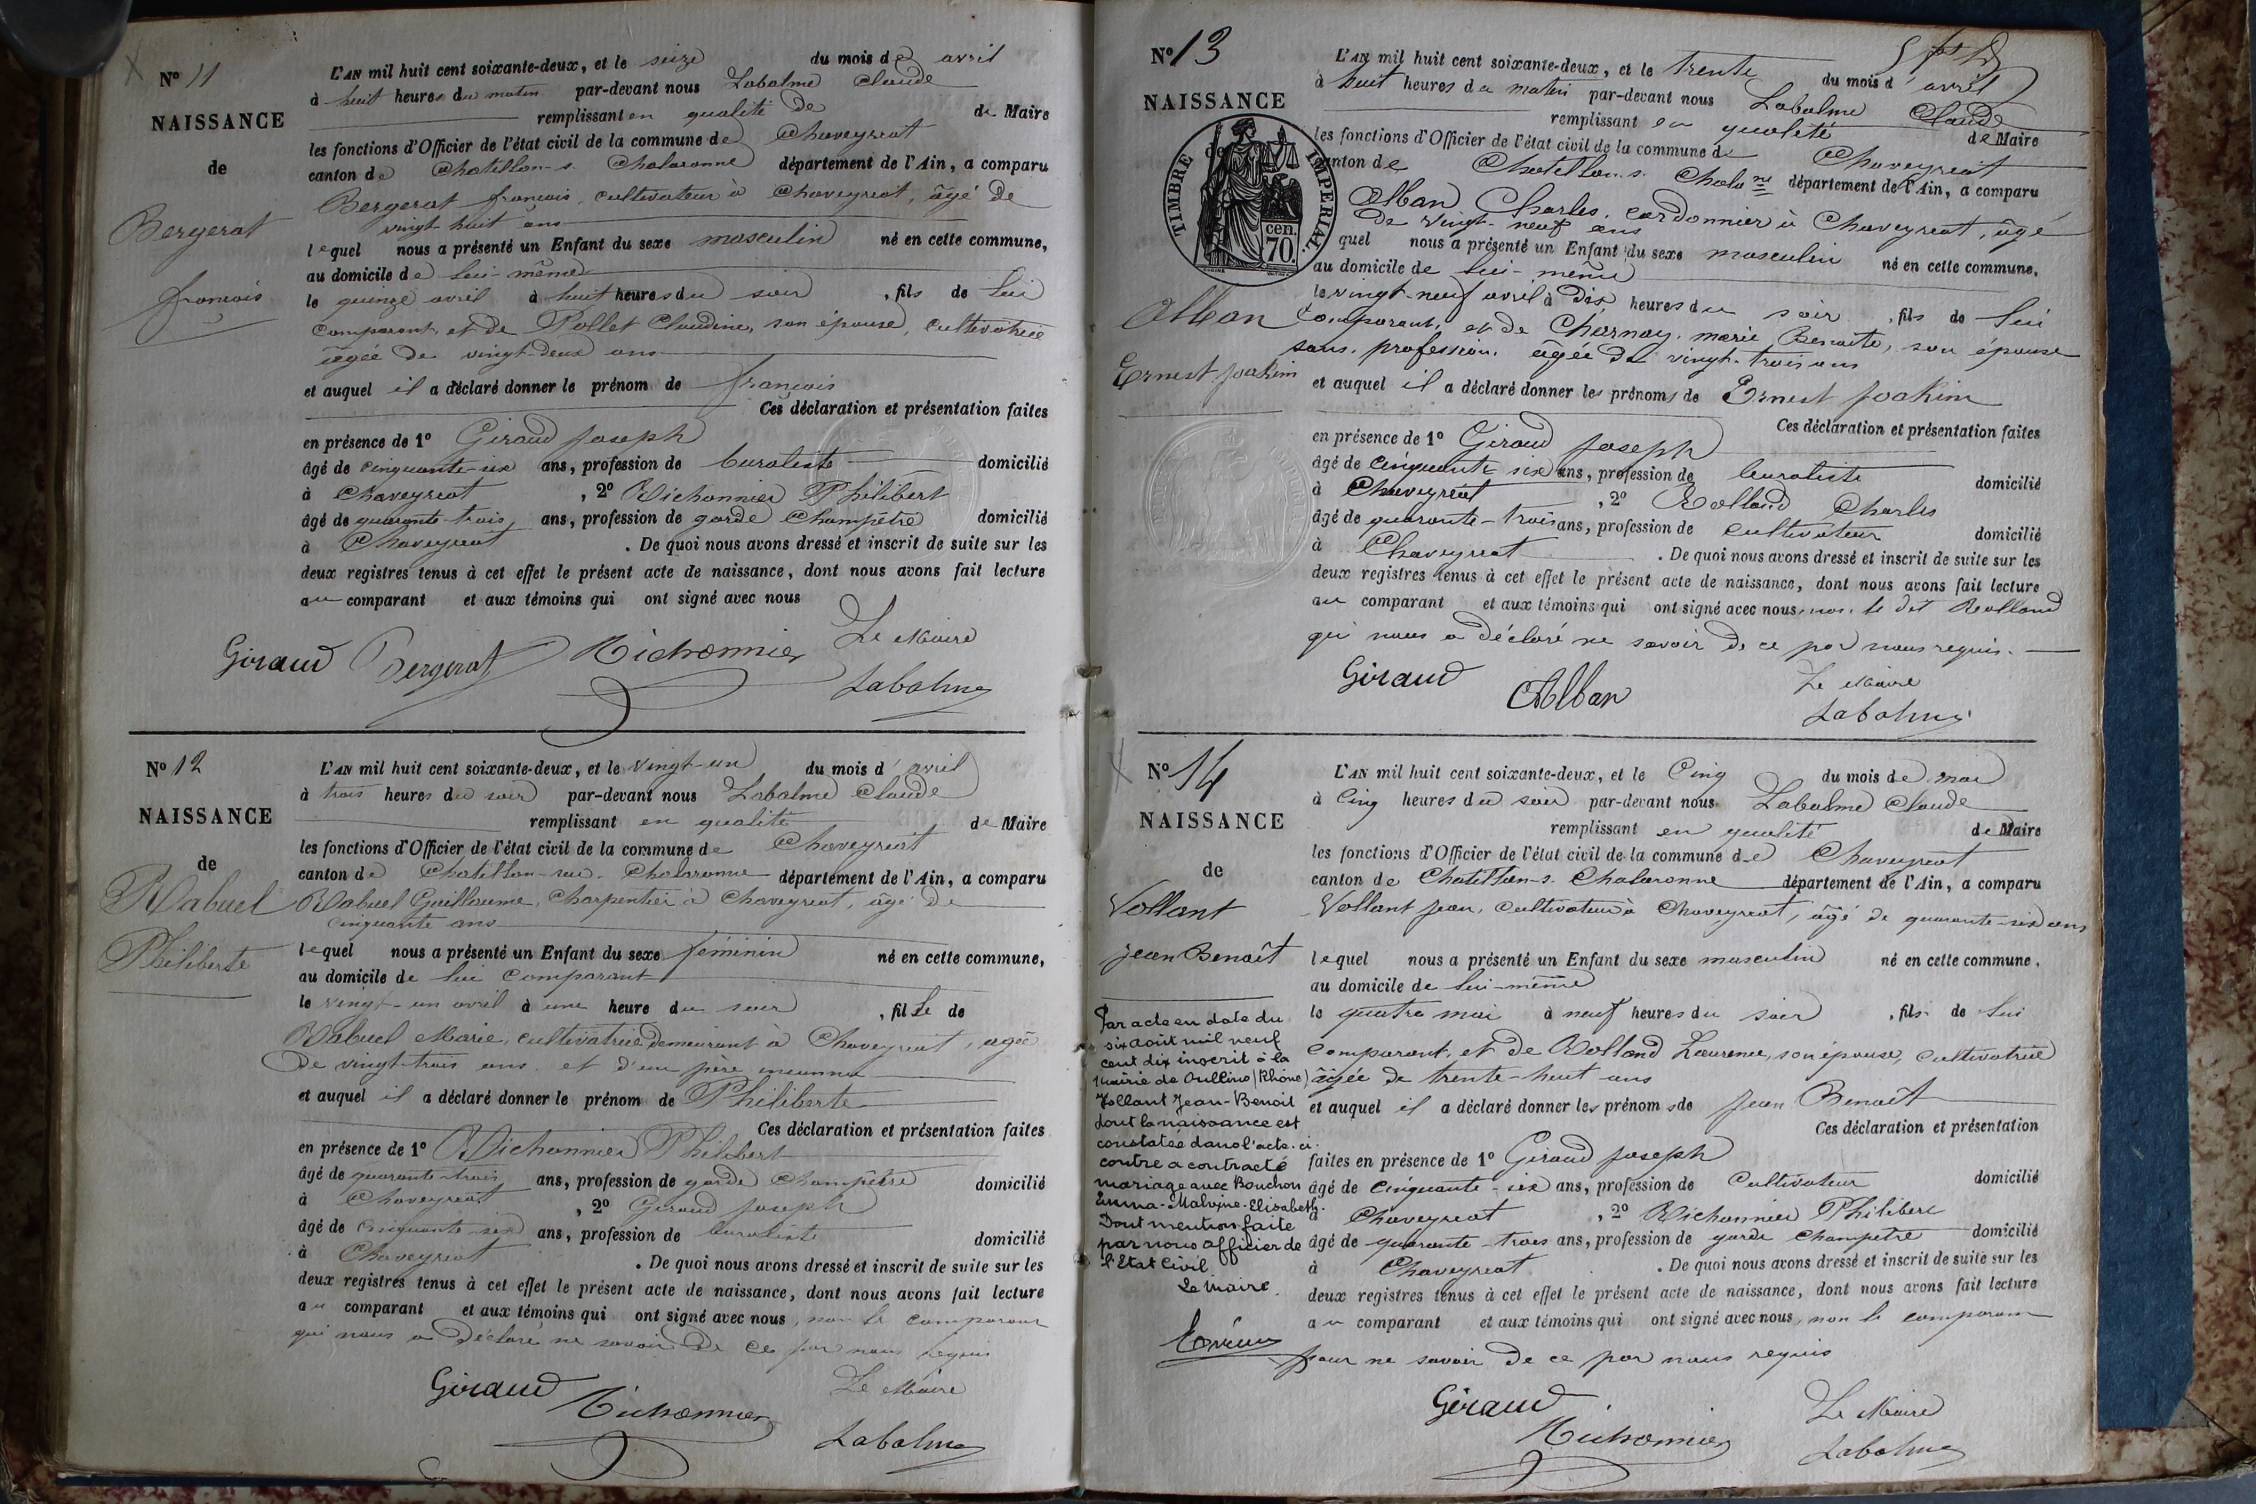 Nº 11
NAISSANCE
de
Bergerat
françois
L'AN mil huit cent soixante-deux, et le seize du mois de avril
à huit heures du matin par-devant nous Labalme Claude
remplissant en qualité de de Maire
les fonctions d'Officier de l'état civil de la commune de Chaveyriat
canton de Chatillon-s. Chalaronne département de l'Ain, a comparu
Bergerat françois, cultivateur à Chaveyriat, âgé de
vingt huit ans
lequel nous a présenté un Enfant du sexe masculin né en cette commune,
au domicile de lui-même
le quinze avril à huit heures du soir, fils de lui
comparant, et de Pollet Claudine, son épouse, cultivatrice
âgée de vingt-deux ans
et auquel il a déclaré donner le prénom de françois
Ces déclaration et présentation faites
en présence de 1º Giraud Joseph
âgé de cinquante-six ans, profession de buraliste domicilié
à Chaveyriat, 2º Michonnier Philibert
âgé de quarante-trois ans, profession de garde Champêtre domicilié
à Chaveyriat. De quoi nous avons dressé et inscrit de suite sur les
deux registres tenus à cet effet le présent acte de naissance, dont nous avons fait lecture
au comparant et aux témoins qui ont signé avec nous
Le Maire
Giraud Bergerat Michonnier
Labalme
Nº 12
NAISSANCE
de
Rabuel
Philiberte
L'AN mil huit cent soixante-deux, et le vingt-un du mois d'avril
à trois heures du soir par-devant nous Labalme Claude
remplissant en qualité de Maire
les fonctions d'Officier de l'état civil de la commune de Chaveyriat
canton de Chatillon-sur-Chalaronne département de l'Ain, a comparu
Rabuel Guillaume, Charpentier à Chaveyriat, âgé de
cinquante ans
lequel nous a présenté un Enfant du sexe féminin né en cette commune,
au domicile de lui comparant
le vingt-un avril à une heure du soir, fille de
Rabuel Marie, cultivatrice demeurant à Chaveyriat, agée
De vingt-trois ans, et d'un père inconnu
et auquel il a déclaré donner le prénom de Philiberte
Ces déclaration et présentation faites
en présence de 1º Michonnier Philibert
âgé de quarante-trois ans, profession de garde Champêtre domicilié
à Chaveyriat, 2º Giraud Joseph
âgé de cinquante-six ans, profession de buraliste domicilié
à Chaveyriat. De quoi nous avons dressé et inscrit de suite sur les
deux registres tenus à cet effet le présent acte de naissance, dont nous avons fait lecture
au comparant et aux témoins qui ont signé avec nous, non le comparant
qui nous a déclaré ne savoir de ce par nous requis
Le Maire
Giraud Michonnier
Labalme
Nº 13
NAISSANCE
de
TIMBRE IMPÉRIAL
cen. 70.
Alban
Ernest Joakim
L'AN mil huit cent soixante-deux, et le trente du mois d'avril
à huit heures du matin par-devant nous Labalme Claude
remplissant en qualité de Maire
les fonctions d'Officier de l'état civil de la commune de Chaveyriat
canton de Chatillon-s. Chalane département de l'Ain, a comparu
Alban Charles, cordonnier à Chaveyriat, âgé
De vingt-neuf ans
quel nous a présenté un Enfant du sexe masculin né en cette commune,
au domicile de lui-même
le vingt-neuf avril à Dix heures du soir, fils de lui
comparant, et de Charnay, marie Benoite, son épouse
sans profession, âgée de vingt-trois ans
et auquel il a déclaré donner les prénoms de Ernest Joakim
Ces déclaration et présentation faites
en présence de 1º Giraud Joseph
âgé de cinquante six ans, profession de buraliste domicilié
à Chaveyriat, 2º Rolland Charles
âgé de quarante-trois ans, profession de cultivateur domicilié
à Chaveyriat. De quoi nous avons dressé et inscrit de suite sur les
deux registres tenus à cet effet le présent acte de naissance, dont nous avons fait lecture
au comparant et aux témoins qui ont signé avec nous, non le dit Rolland
qui nous a déclaré ne savoir de ce par nous requis.
Le Maire
Giraud CAlban
Labalme
Nº 14
NAISSANCE
de
Vollant
Jean Benoît
Par acte en date du
six août mil neuf
cent dix inscrit à la
Mairie de Oullins (Rhône)
Vollant Jean-Benoit
dont la naissance est
constatée dans l'acte ci-
contre a contracté
mariage avec Bouchon
Emma-Malvina-Elisabeth.
Dont mention faite
par nous officier de
l'Etat Civil
Le Maire.
L'AN mil huit cent soixante-deux, et le Cinq du mois de mai
à Cinq heures du soir par-devant nous Labalme Claude
remplissant en qualité de Maire
les fonctions d'Officier de l'état civil de la commune de Chaveyriat
canton de Chatillon-s. Chalaronne département de l'Ain, a comparu
Vollant Jean, Cultivateur à Chaveyriat, âgé de quarante-six ans
lequel nous a présenté un Enfant du sexe masculin né en cette commune,
au domicile de lui-même
le quatre mai à neuf heures du soir, fils de lui
comparant, et de Rolland Laurence, son épouse, cultivatrice
âgée de trente-huit ans
et auquel il a déclaré donner les prénoms de Jean Benoît
Ces déclaration et présentation
faites en présence de 1º Giraud Joseph
âgé de cinquante-six ans, profession de Cultivateur domicilié
à Chaveyriat, 2º Michonnier Philibert
âgé de quarante-trois ans, profession de garde champêtre domicilié
à Chaveyriat. De quoi nous avons dressé et inscrit de suite sur les
deux registres tenus à cet effet le présent acte de naissance, dont nous avons fait lecture
au comparant et aux témoins qui ont signé avec nous, non le comparant
pour ne savoir de ce par nous requis
Le Maire
Giraud Michonnier
Labalme